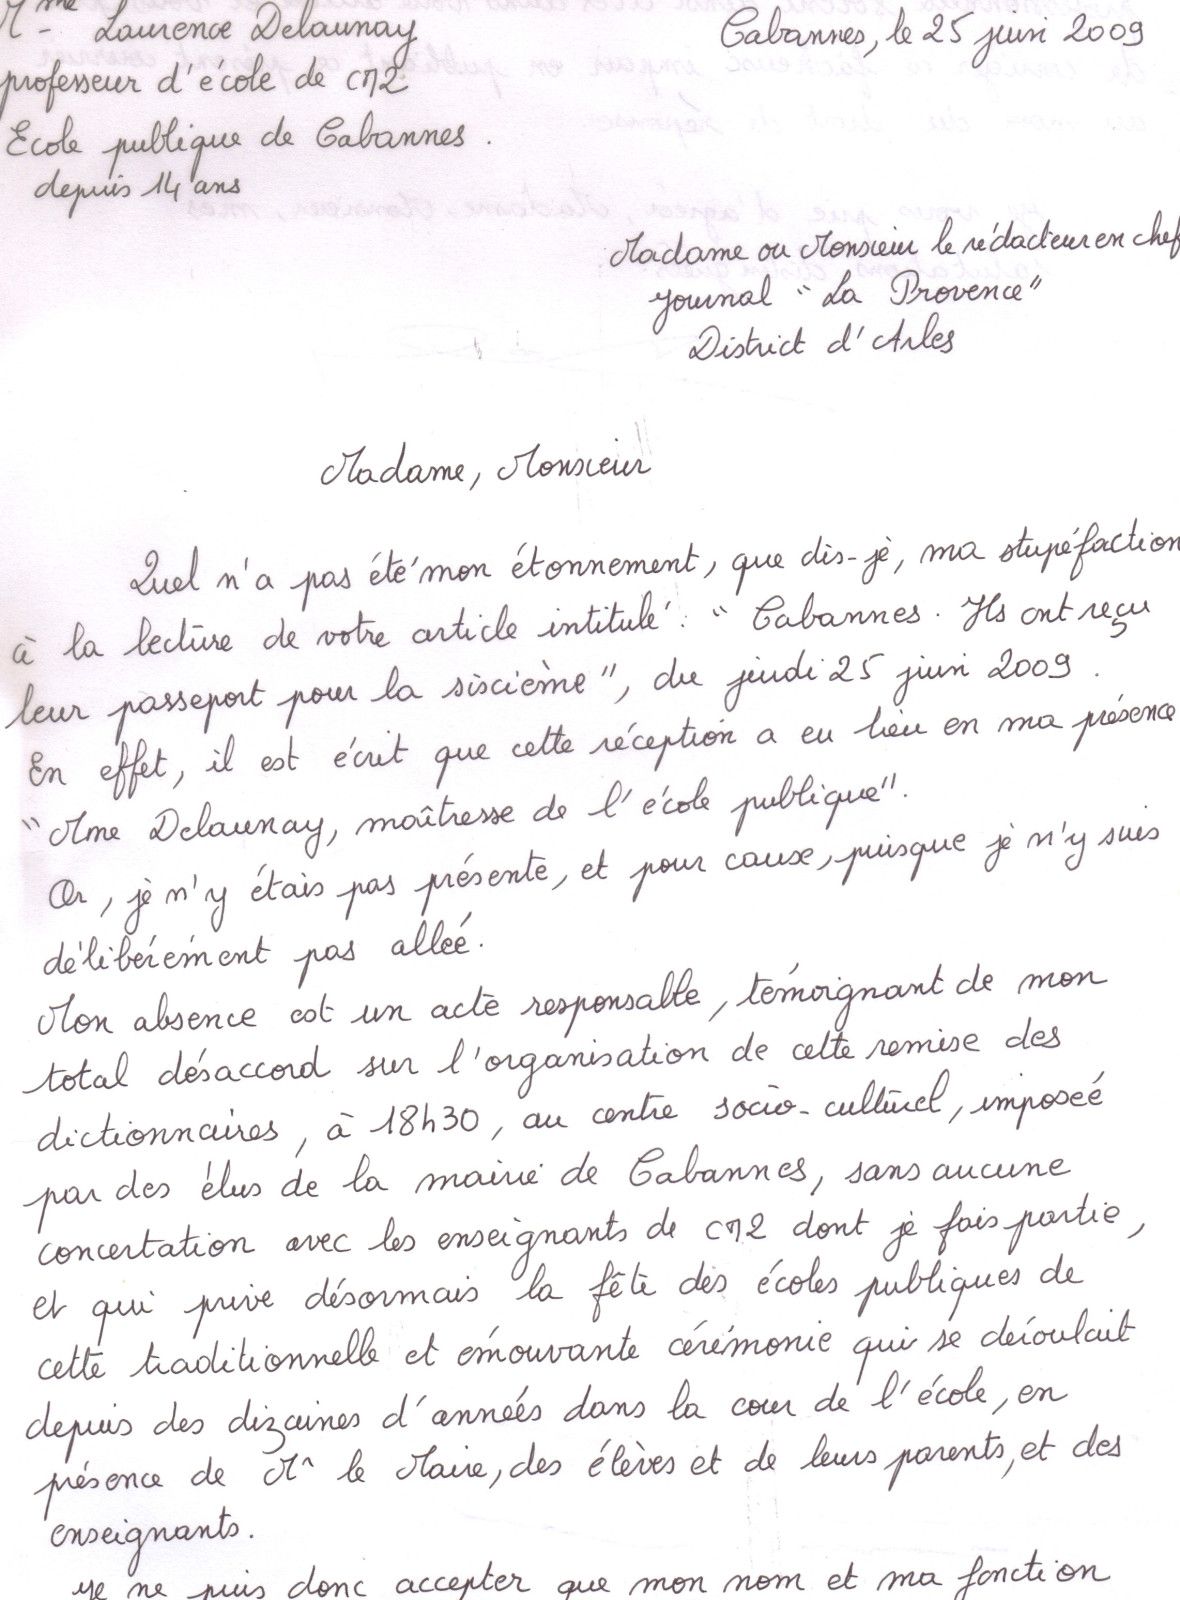 Mme Laurence Delaunay
Cabannes, le 25 juin 2009
professeur d'école de CM2
Ecole publique de Cabannes.
depuis 14 ans
Madame ou Monsieur le rédacteur en chef
Journal "La Provence"
District d'Arles
Madame, Monsieur
Quel n'a pas été mon étonnement, que dis-je, ma stupéfaction
à la lecture de votre article intitulé : "Cabannes. Ils ont reçu
leur passeport pour la sixième", du jeudi 25 juin 2009.
En effet, il est écrit que cette réception a eu lieu en ma présence
"Mme Delaunay, maîtresse de l'école publique".
Or, je n'y étais pas présente, et pour cause, puisque je n'y suis
délibérément pas allée.
Mon absence est un acte responsable, témoignant de mon
total désaccord sur l'organisation de cette remise des
dictionnaires, à 18h30, au centre socio-culturel, imposée
par des élus de la mairie de Cabannes, sans aucune
concertation avec les enseignants de CM2 dont je fais partie,
et qui prive désormais la fête des écoles publiques de
cette traditionnelle et émouvante cérémonie qui se déroulait
depuis des dizaines d'années dans la cour de l'école, en
présence de Mr le Maire, des élèves et de leurs parents, et des
enseignants.
Je ne puis donc accepter que mon nom et ma fonction